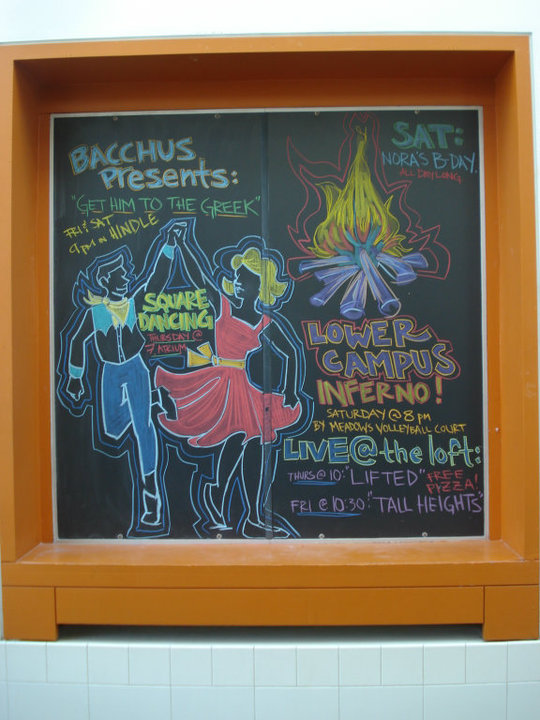 BACCHUS
Presents:
"GET HIM TO THE GREEK"
FRI & SAT
9 pm in HINDLE
SQUARE
DANCING
THURSDAY @
7 ATRIUM
SAT:
NORA'S B-DAY.
ALL DAY LONG
LOWER
CAMPUS
INFERNO!
SATURDAY @ 8 pm
BY MEADOWS VOLLEYBALL COURT
LIVE @ the loft:
THURS @ 10: "LIFTED" FREE
PIZZA!
FRI @ 10:30: "TALL HEIGHTS"